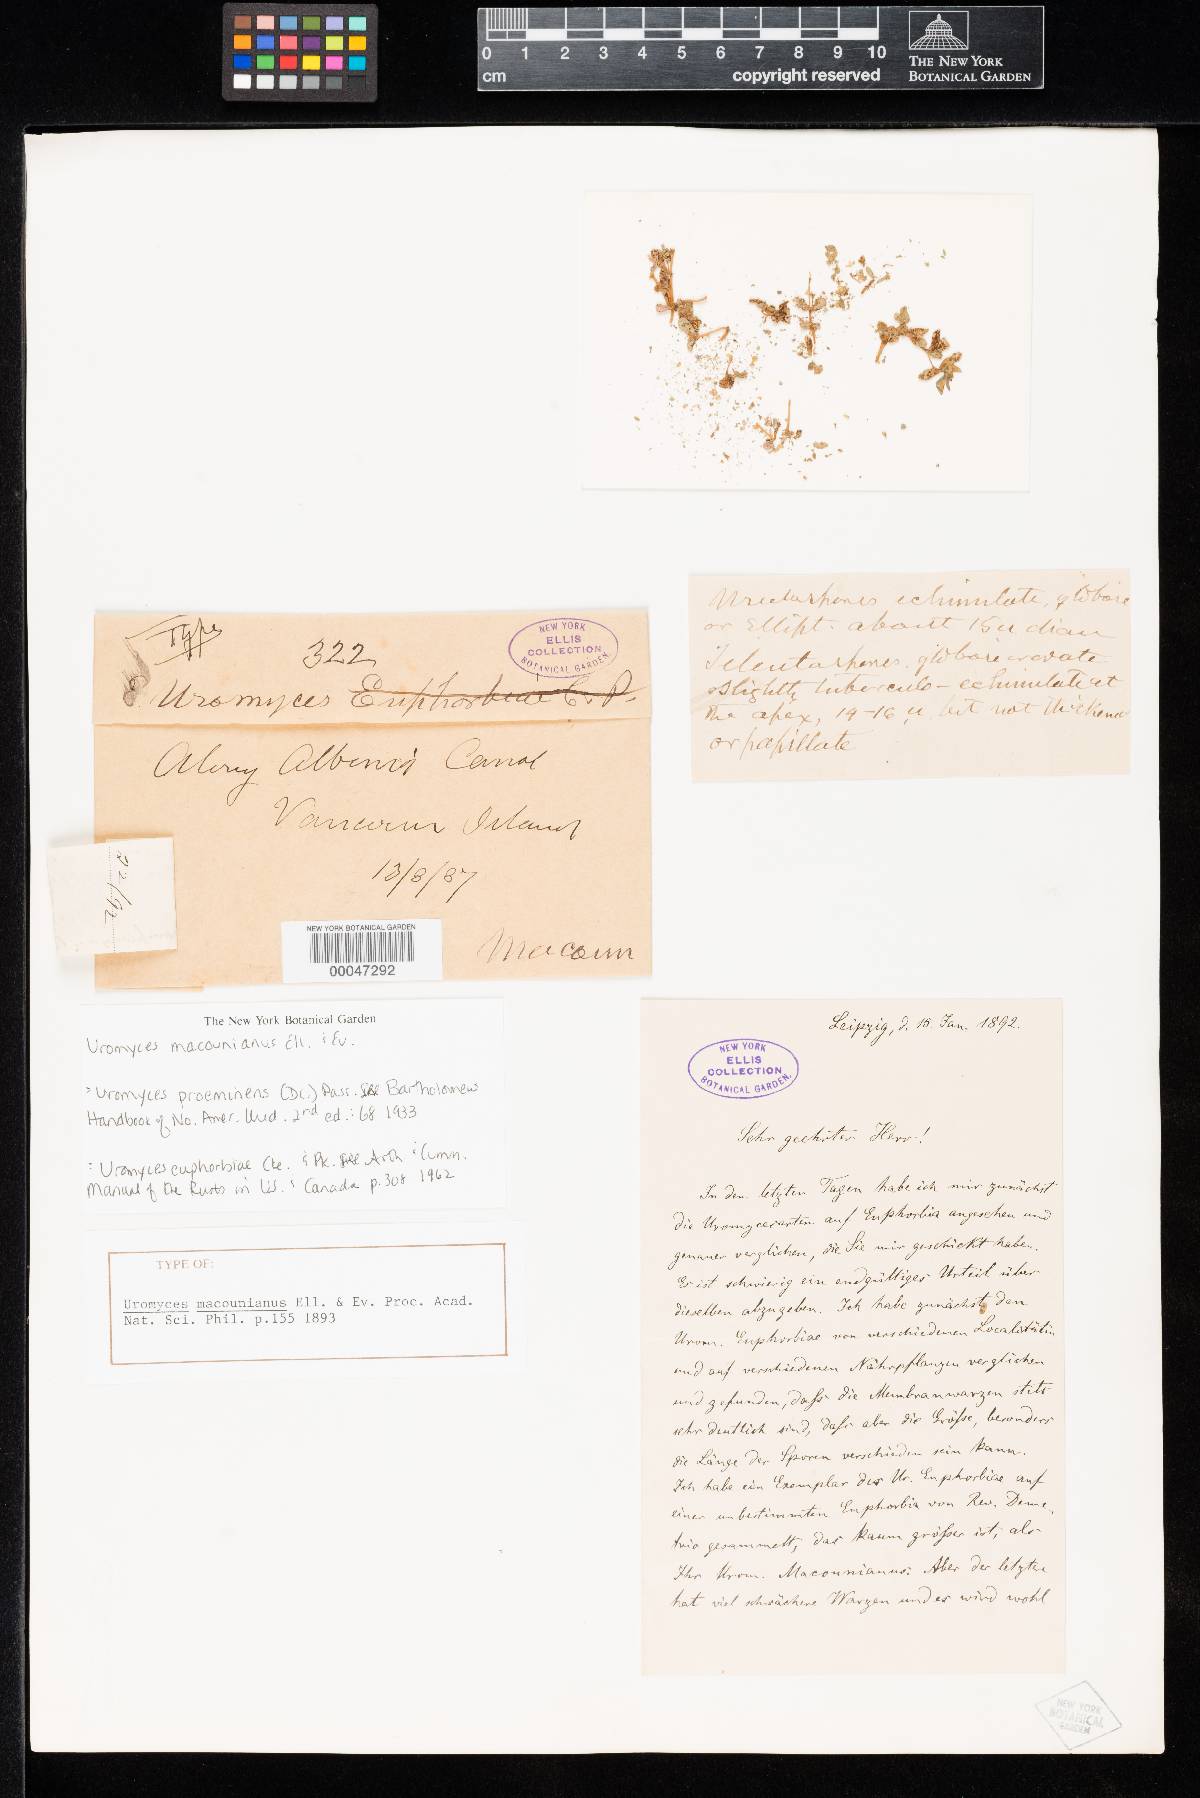 0 1 2 3 4 5 6 7 8 9 10
cm
copyright reserved
THE NEW YORK
BOTANICAL GARDEN
Type
322
NEW YORK
ELLIS
COLLECTION
BOTANICAL GARDEN
Uromyces Euphorbiae C. P.
Along Alberni Canal
Vancouver Island
13/8/87
22/92
NEW YORK BOTANICAL GARDEN
00047292
Macoun
Uredospores echinulate, globose
or Ellipt. about 15 u diam
Teleutospores, globose ovate
slightly tuberculo-echinulate at
the apex, 14-16 u but not thickened
or papillate
The New York Botanical Garden
Uromyces macounianus Ell. & Ev.
= Uromyces proeminens (Dc.) Pass. See Bartholomew
Handbook of No. Amer. Ured. 2nd ed.: 68 1933
= Uromyces euphorbiae Cke. & Pk. See Arth & Cumm.
Manual of the Rusts in U.S. & Canada p. 308 1962
TYPE OF:
Uromyces macounianus Ell. & Ev. Proc. Acad.
Nat. Sci. Phil. p.155 1893
Leipzig, d. 15. Jan. 1892.
NEW YORK
ELLIS
COLLECTION
BOTANICAL GARDEN.
Sehr geehrter Herr!
In den letzten Tagen habe ich mir zunächst
die Uromycesarten auf Euphorbia angesehen und
genauer verglichen, die Sie mir geschickt haben.
Es ist schwierig ein endgültiges Urteil über
dieselben abzugeben. Ich habe zunächst den
Urom. Euphorbiae von verschiedenen Localitäten
und auf verschiedenen Nährpflanzen verglichen
und gefunden, daß die Membranwarzen stets
sehr deutlich sind, daß aber die Größe, besonders
die Länge der Sporen verschieden sein kann.
Ich habe ein Exemplar des Ur. Euphorbiae auf
einer unbestimmten Euphorbia von Rev. Deme-
trio gesammelt, das kaum größer ist, als
Ihr Urom. Macounianus. Aber der letztere
hat viel schwächere Warzen und es wird wohl
NEW YORK
BOTANICAL
GARDEN